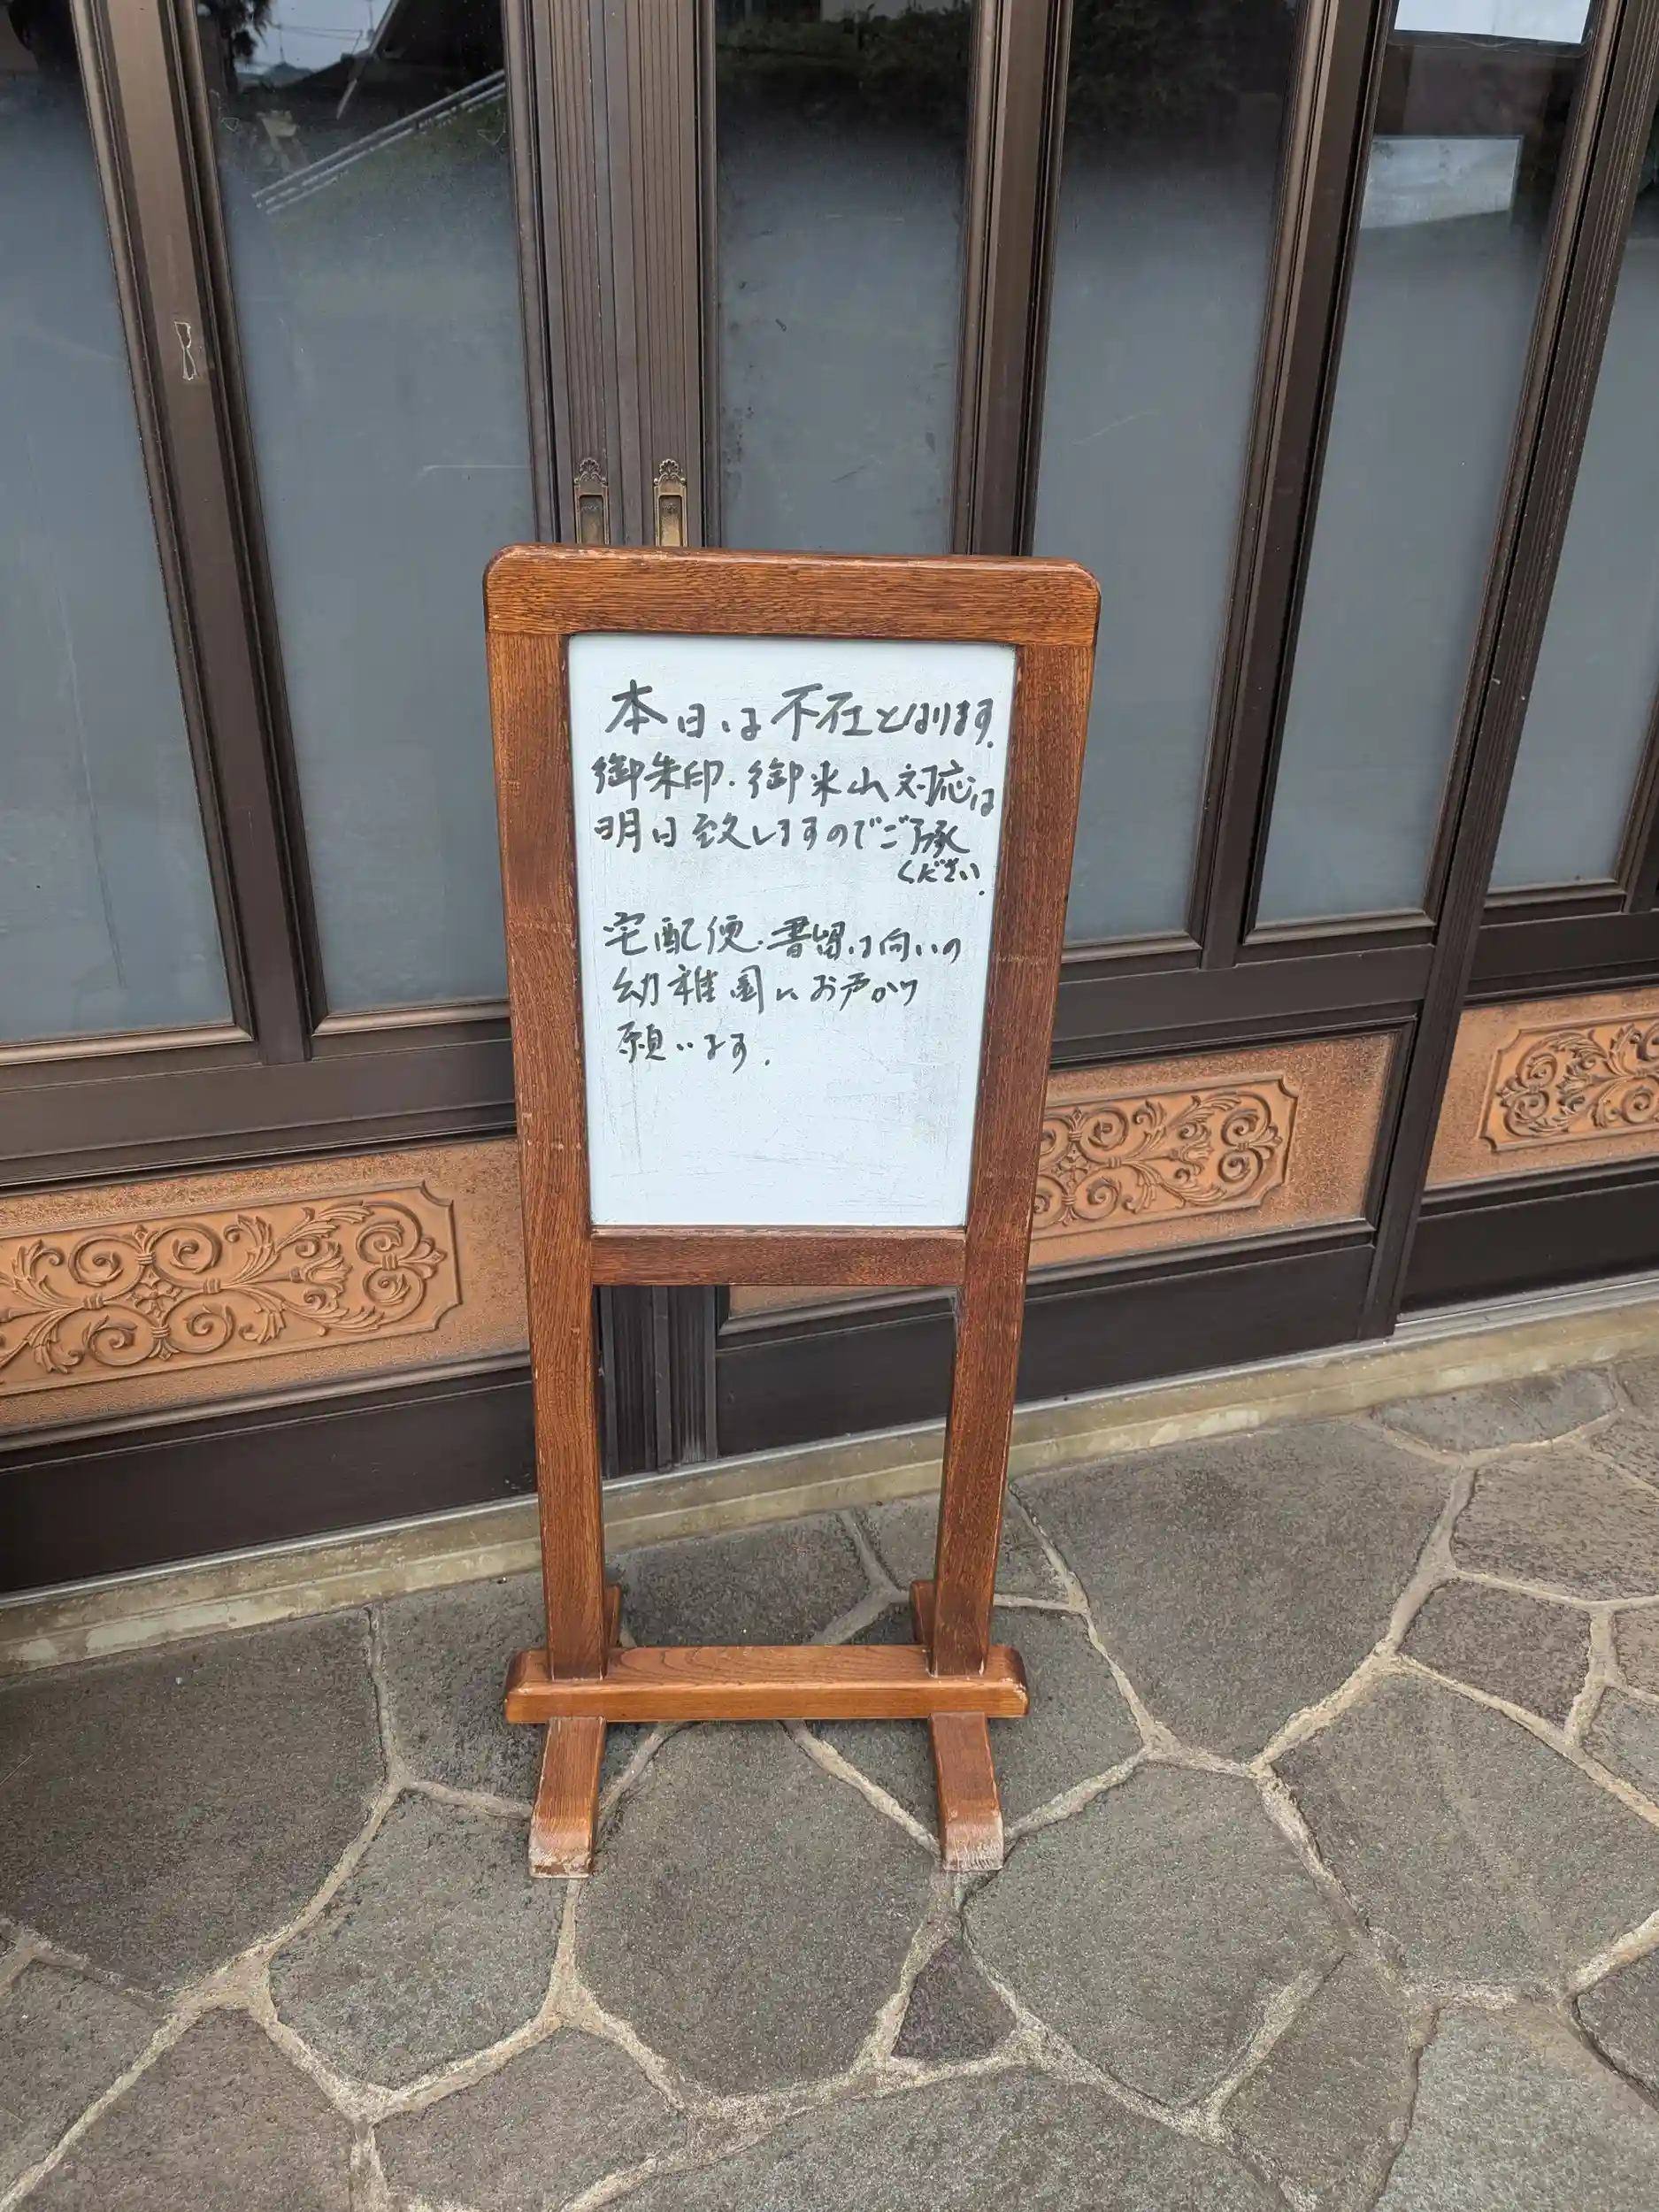 本日は不在となります.
御朱印.御米山対応は
明日致しますのでご了承
ください.
宅配便.書留は向いの
幼稚園にお声かけ
願います.